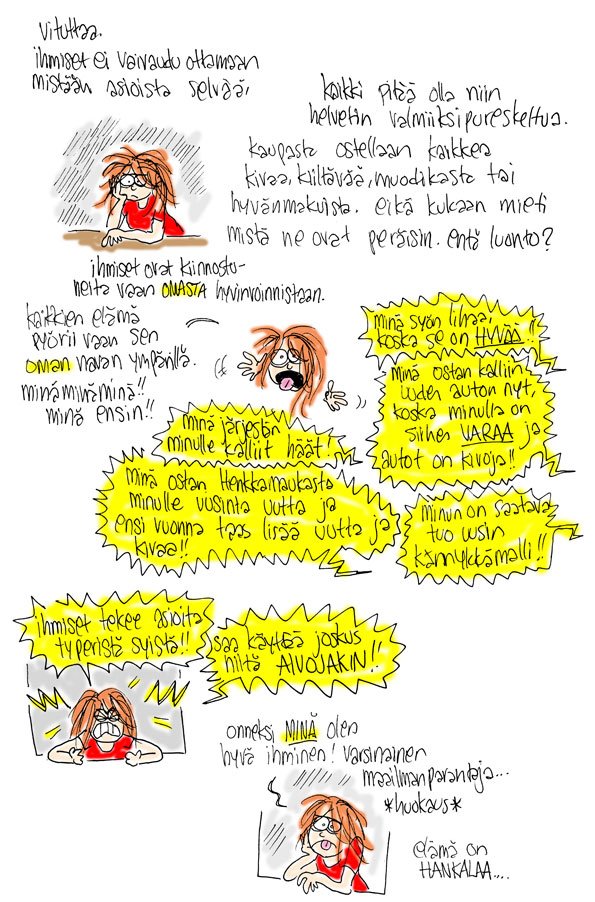 vituttaa.
ihmiset ei vaivaudu ottamaan
mistään asioista selvää,
kaikki pitää olla niin
helvetin valmiiksipureskeltua.
kaupasta ostellaan kaikkea
kivaa, kiiltävää, muodikasta tai
hyvänmakuista. eikä kukaan mieti
mistä ne ovat peräisin. entä luonto?
ihmiset ovat kiinnostu-
neita vaan OMASTA hyvinvoinnistaan.
kaikkien elämä
pyörii vaan sen
OMAN navan ympärillä.
minäminäminä!!
minä ensin!!
minä syön lihaa,
koska se on HYVÄÄ!!
minä ostan kalliin
uuden auton nyt,
koska minulla on
siihen VARAA ja
autot on kivoja!!
minä järjestän
minulle kalliit häät!
minä ostan Henkkamaukasta
minulle uusinta uutta ja
ensi vuonna taas lisää uutta ja
kivaa!!
minun on saatava
tuo uusin
kännykkämalli!!
ihmiset tekee asioita
typeristä syistä!!
saa käyttää joskus
niitä AIVOJAKIN!!
onneksi MINÄ olen
hyvä ihminen! varsinainen
maailmanparantaja...
*huokaus*
elämä on
HANKALAA....